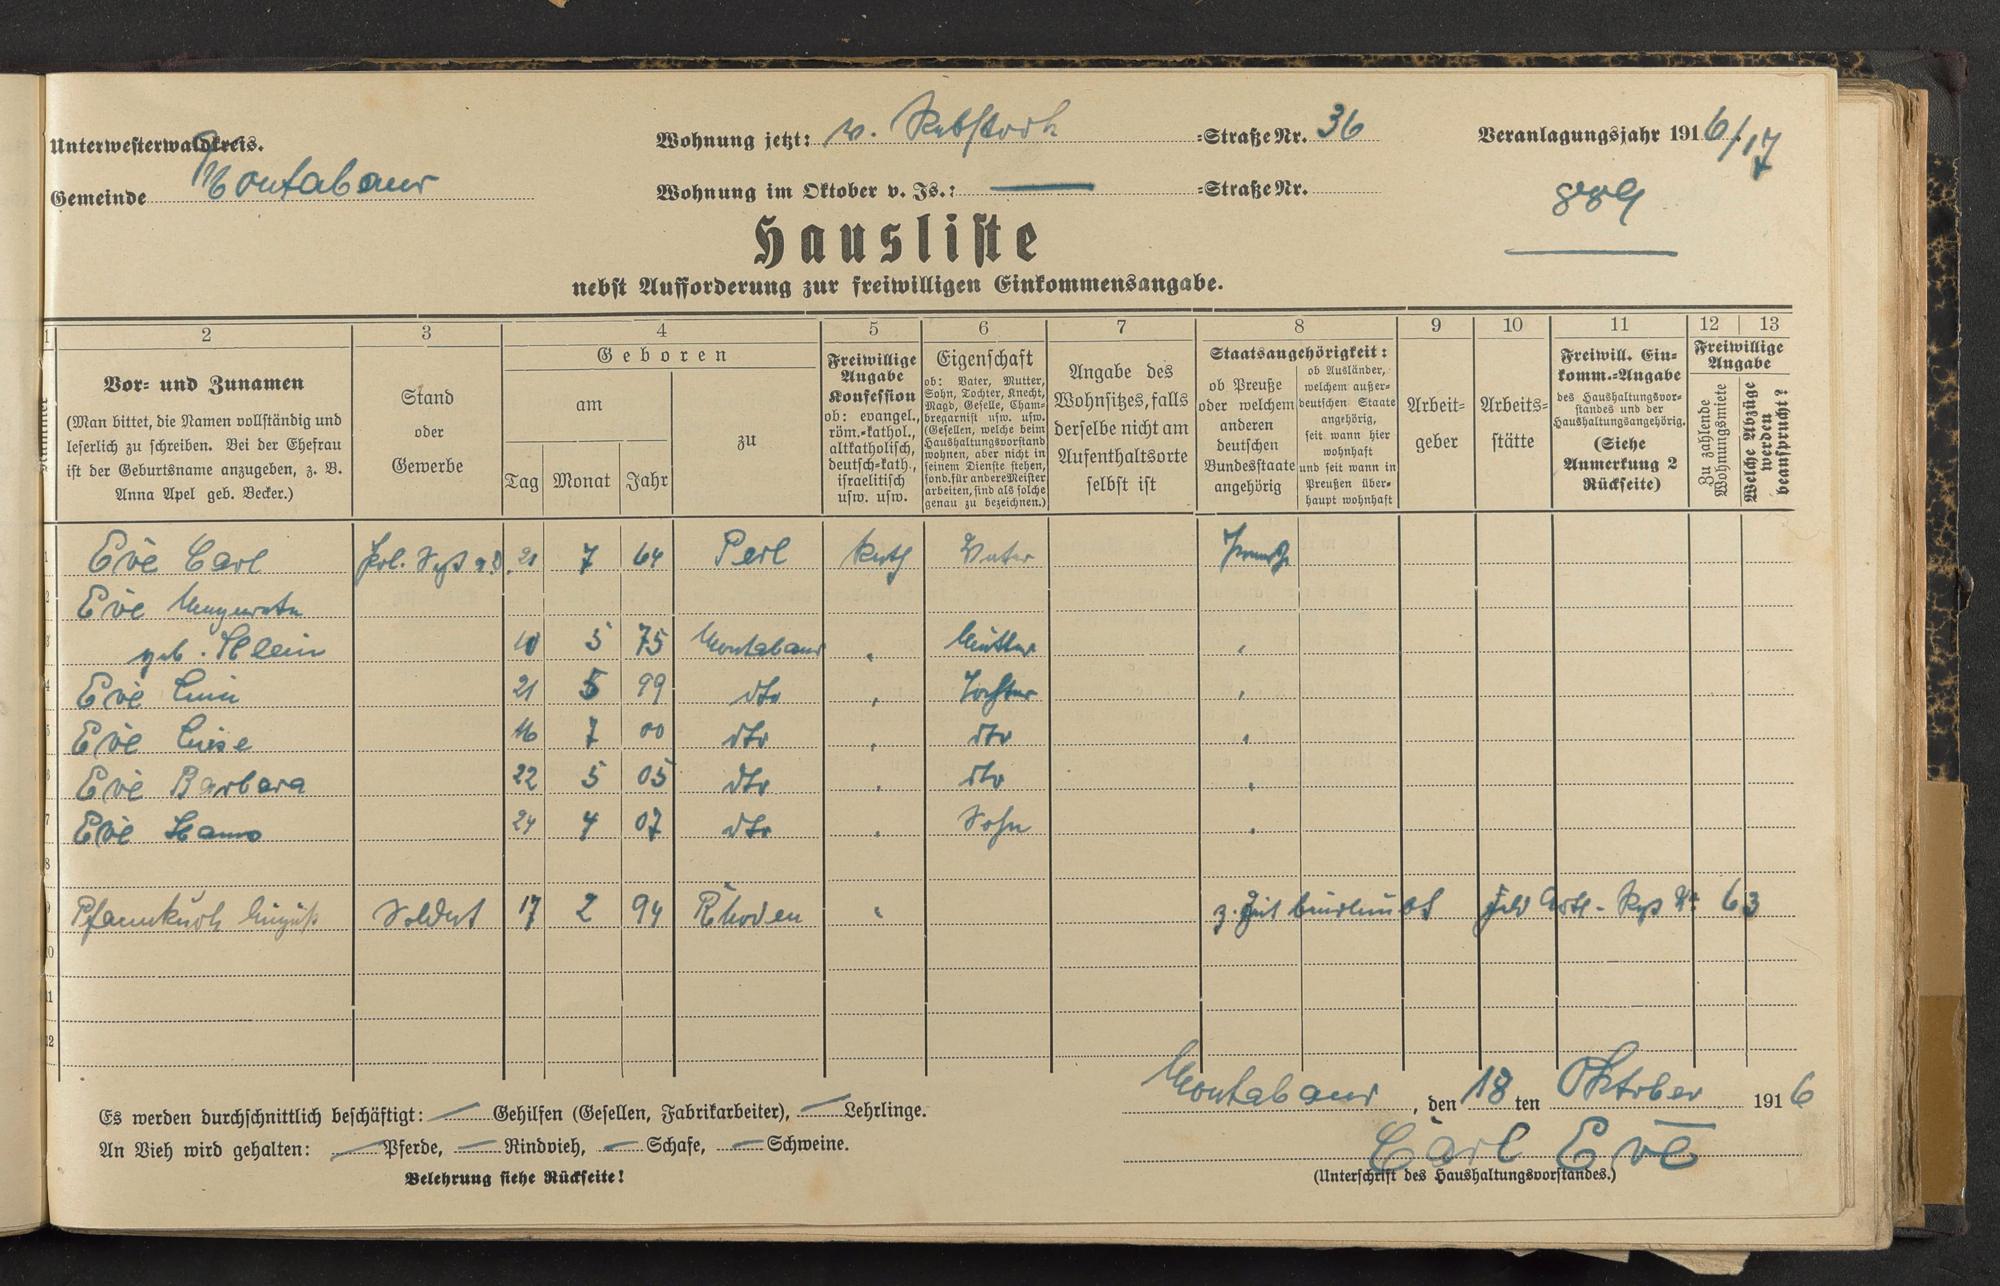 Unterwesterwaldkreis.
Gemeinde Montabaur
Wohnung jetzt: v. Rebstock =Straße Nr. 36
Wohnung im Oktober v. Js.: — =Straße Nr.
Veranlagungsjahr 1916/17
889
Hausliste
nebst Aufforderung zur freiwilligen Einkommensangabe.
1 2 3 4 5 6 7 8 9 10 11 12 13
Nummer
Vor= und Zunamen
(Man bittet, die Namen vollständig und
leserlich zu schreiben. Bei der Ehefrau
ist der Geburtsname anzugeben, z. B.
Anna Apel geb. Becker.)
Stand
oder
Gewerbe
Geboren
am
Tag Monat Jahr
zu
Freiwillige
Angabe
Konfession
ob: evangel.,
röm.=kathol.,
altkatholisch,
deutsch=kath.,
israelitisch
usw. usw.
Eigenschaft
ob: Vater, Mutter,
Sohn, Tochter, Knecht,
Magd, Geselle, Cham=
bregarnist usw. usw.
(Gesellen, welche beim
Haushaltungsvorstand
wohnen, aber nicht in
seinem Dienste stehen,
sond. für andere Meister
arbeiten, sind als solche
genau zu bezeichnen.)
Angabe des
Wohnsitzes, falls
derselbe nicht am
Aufenthaltsorte
selbst ist
Staatsangehörigkeit:
ob Preuße
oder welchem
anderen
deutschen
Bundesstaate
angehörig
ob Ausländer,
welchem außer=
deutschen Staate
angehörig,
seit wann hier
wohnhaft
und seit wann in
Preußen über=
haupt wohnhaft
Arbeit=
geber
Arbeits=
stätte
Freiwill. Ein=
komm.=Angabe
des Haushaltungsvor=
standes und der
Haushaltungsangehörig.
(Siehe
Anmerkung 2
Rückseite)
Freiwillige
Angabe
Zu zahlende
Wohnungsmiete
Welche Abzüge
werden
beansprucht?
1 Eve Carl 21 7 64 Perl kath Vater Preuße
2 Eve Margareta
3 geb. Klein 10 5 75 Montabaur " Mutter "
4 Eve 21 5 99 dto " Tochter "
5 Eve Luise 16 7 00 dto " dto "
6 Eve Barbara 22 5 05 dto " dto "
7 Eve Hanns 24 4 07 dto " Sohn "
8
9 Pfannkuch August Soldat 17 2 94 Rhoden " z. Zeit Feld Artl. - Rgt Nr. 63
10
11
12
Es werden durchschnittlich beschäftigt: — Gehilfen (Gesellen, Fabrikarbeiter), — Lehrlinge.
An Vieh wird gehalten: — Pferde, — Rindvieh, — Schafe, — Schweine.
Belehrung siehe Rückseite!
Montabaur, den 18ten Oktober 1916
Carl Eve
(Unterschrift des Haushaltungsvorstandes.)